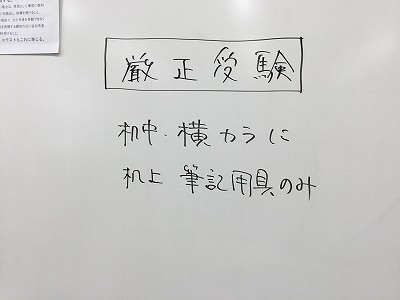 厳正受験
机中・横カラに
机上 筆記用具のみ